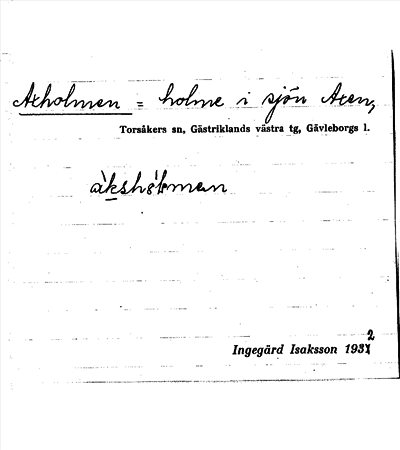 Axholmen = holme i sjön Axen,
Torsåkers sn, Gästriklands västra tg, Gävleborgs l.
àkshólman
Ingegärd Isaksson 1932